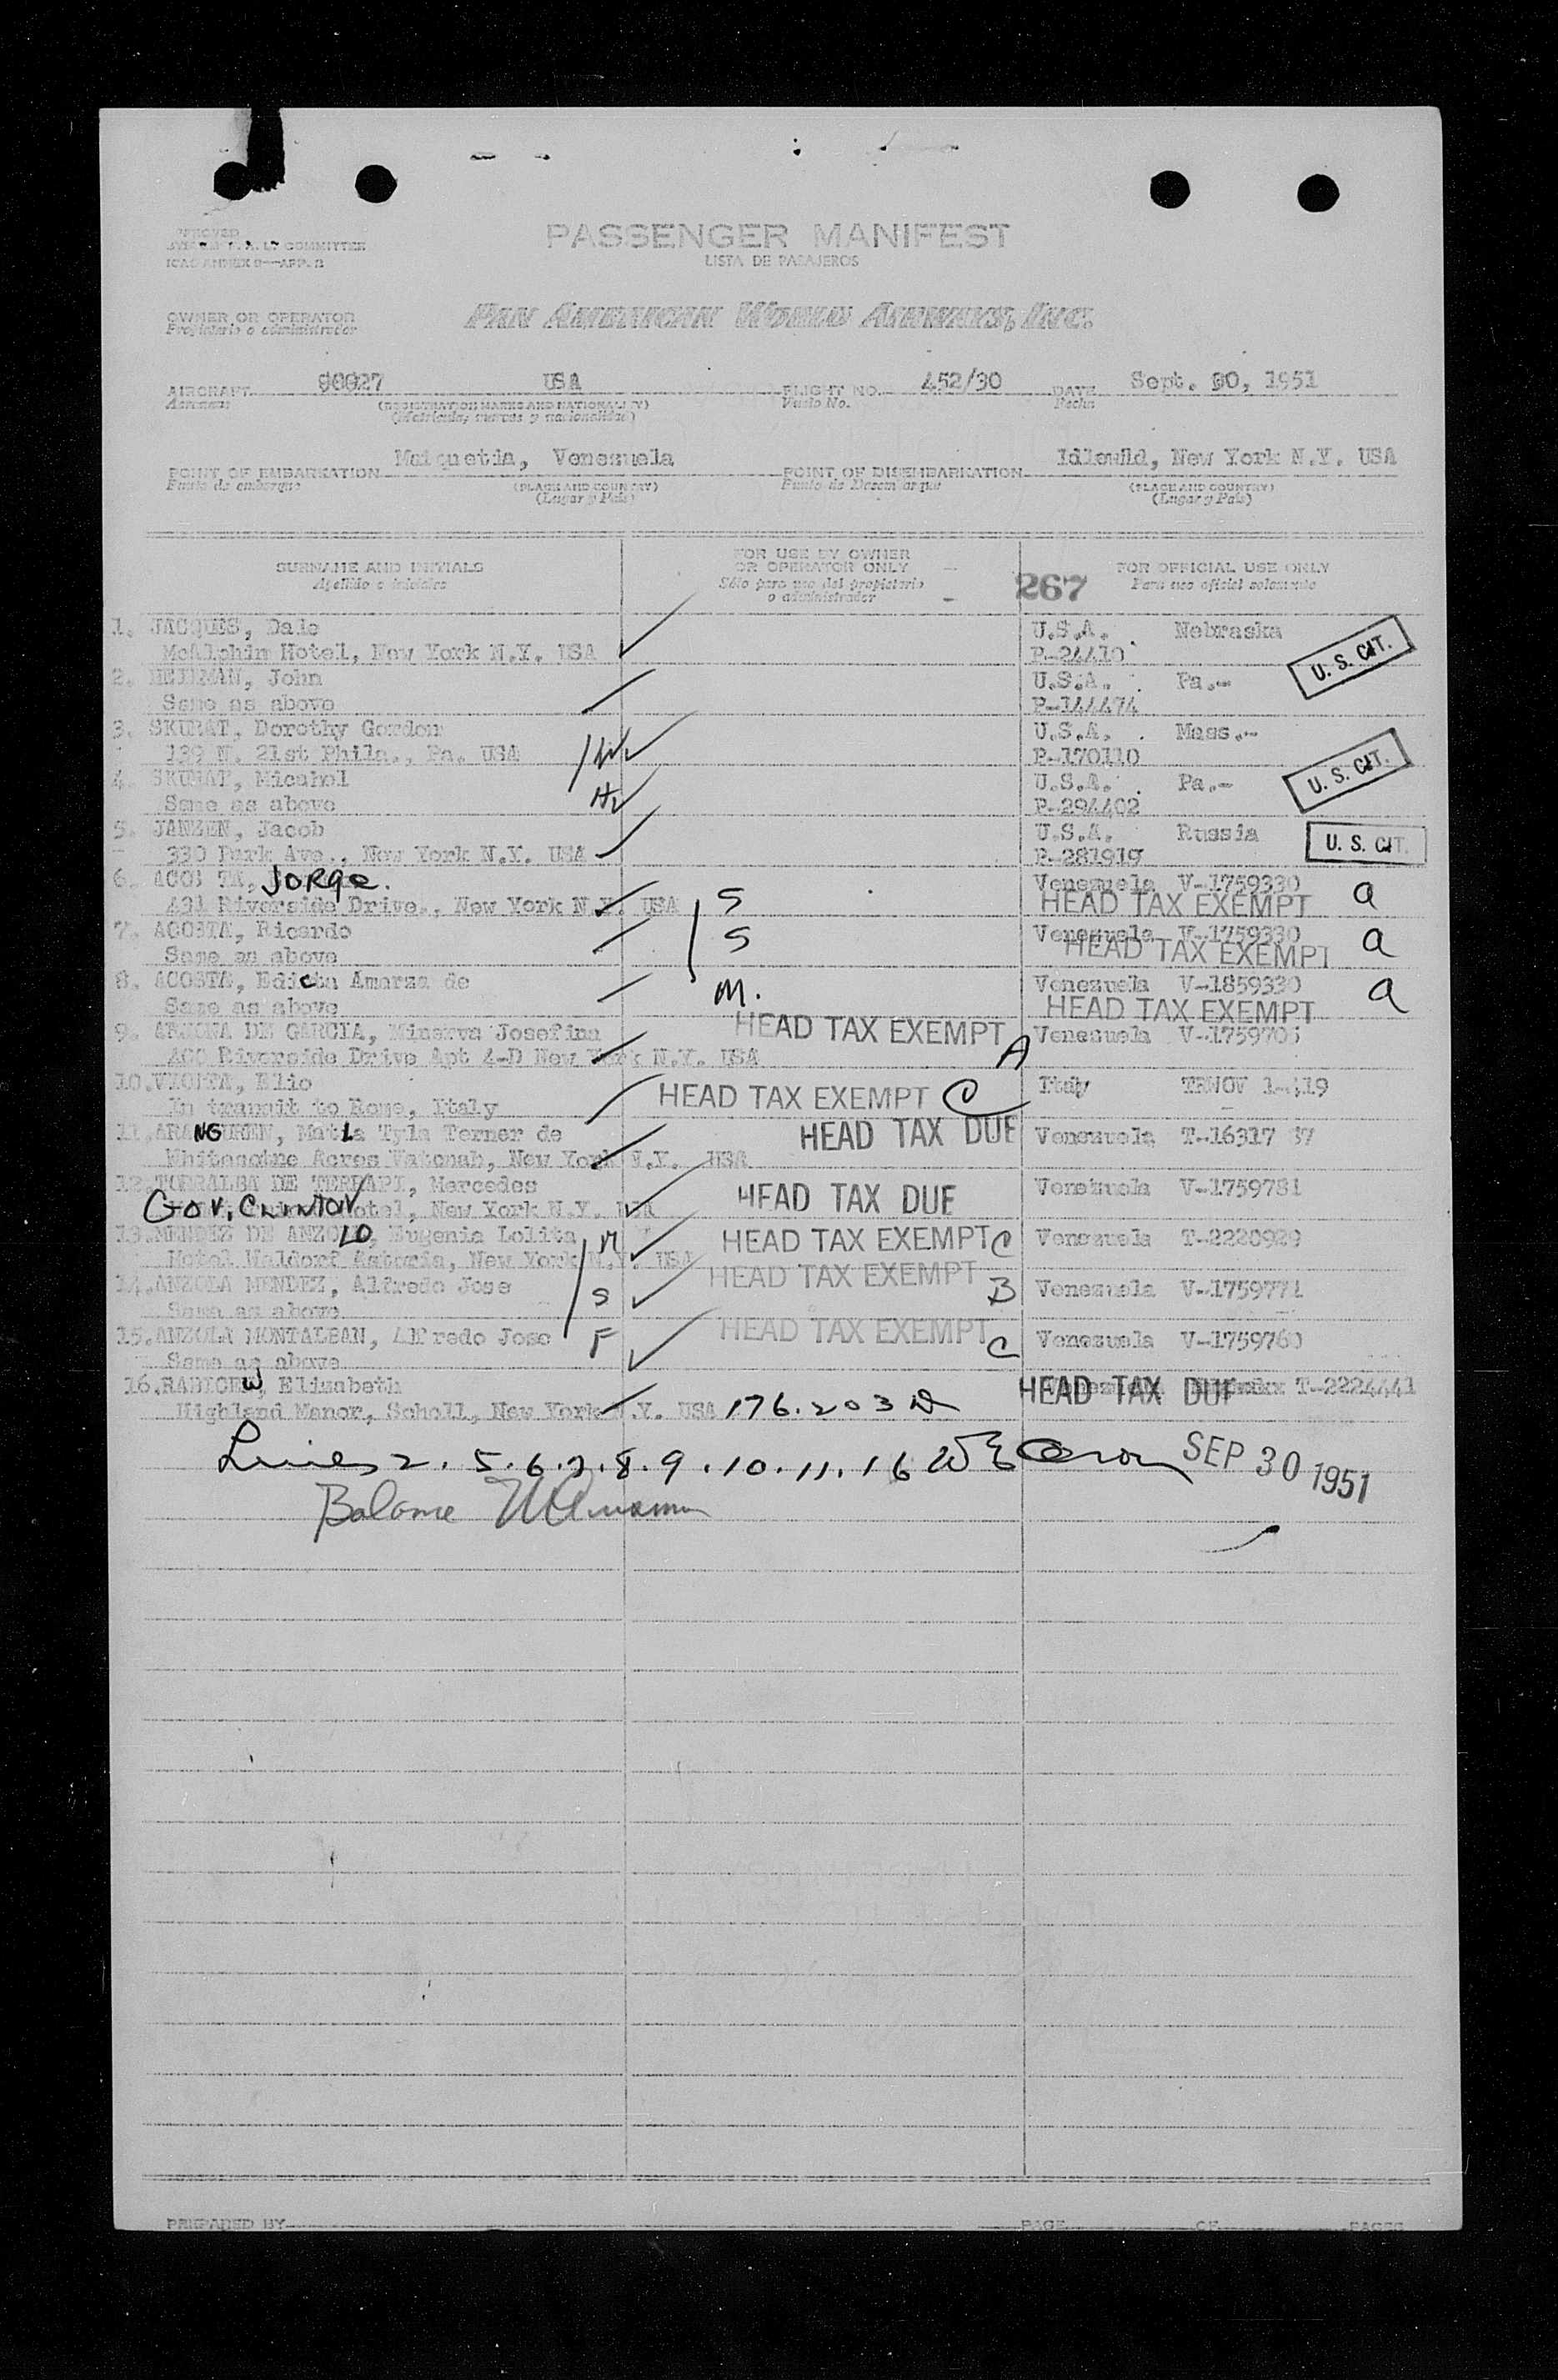 PASSENGER MANIFEST
LISTA DE PASAJEROS
OWNER OR OPERATOR
Propietario o administrador
PAN AMERICAN WORLD AIRWAYS, INC.
AIRCRAFT 90927 USA FLIGHT NO. 452/30 DATE Sept. 30, 1951
Aeronave (REGISTRATION MARKS AND NATIONALITY) Vuelo No. Fecha
(Matricula, marcas y nacionalidad)
POINT OF EMBARKATION Maiquetia, Venezuela POINT OF DISEMBARKATION Idlewild, New York N.Y. USA
Punto de embarque (PLACE AND COUNTRY) Punto de Desembarque (PLACE AND COUNTRY)
(Lugar y País) (Lugar y País)
SURNAME AND INITIALS FOR USE BY OWNER OR OPERATOR ONLY FOR OFFICIAL USE ONLY
Apellido e iniciales Sólo para uso del propietario o administrador 267 Para uso oficial solamente
1. JACQUES, Dale U.S.A. Nebraska
McAlphin Hotel, New York N.Y. USA P-24410 U. S. CIT.
2. John U.S.A. Pa.-
Same as above P-144474
3. SKURAT, Dorothy Gordon U.S.A. Mass.-
139 N. 21st Phila., Pa. USA P-170110
4. SKURAT, Micahel U.S.A. Pa.- U. S. CIT.
Same as above H P-294402
5. JANZEN, Jacob U.S.A. Russia
330 Park Ave., New York N.Y. USA P-281919 U. S. CIT.
6. ACOSTA, JORGe. Venezuela V-1759330
431 Riverside Drive., New York N.Y. USA S HEAD TAX EXEMPT a
7. ACOSTA, Ricardo Venezuela V-1759330
Same as above S HEAD TAX EXEMPT a
8. ACOSTA, Edicta Amarza de Venezuela V-1859330
Same as above M. HEAD TAX EXEMPT a
9. DE GARCIA, Minerva Josefina HEAD TAX EXEMPT A Venezuela V-1759705
Riverside Drive Apt 4-D New York N.Y. USA
10. Elio HEAD TAX EXEMPT C Italy
In transit to Rome, Italy
11. ARANGUREN, Tyla Terner de HEAD TAX DUE Venezuela T-16317 37
Acres New York N.Y. USA
12. TORRALBA DE Mercedes HEAD TAX DUE Venezuela V-1759781
GOV. CLINTON Hotel, New York N.Y. USA
13. MENDEZ DE ANZOLO, Eugenia Lolita M HEAD TAX EXEMPT C Venezuela T-2220929
Hotel Waldorf Astoria, New York N.Y. USA
14. ANZOLA MENDEZ, Alfredo Jose S HEAD TAX EXEMPT B Venezuela V-1759771
Same as above
15. ANZOLA MONTALBAN, Alfredo Jose F HEAD TAX EXEMPT C Venezuela V-1759760
Same as above
16. Elizabeth HEAD TAX DUE T-2224441
Highland Manor, New York N.Y. USA 176.203
Lines 2. 5. 6. 7. 8. 9. 10. 11. 16 SEP 30 1951
Balance
PREPARED BY PAGE OF PAGES